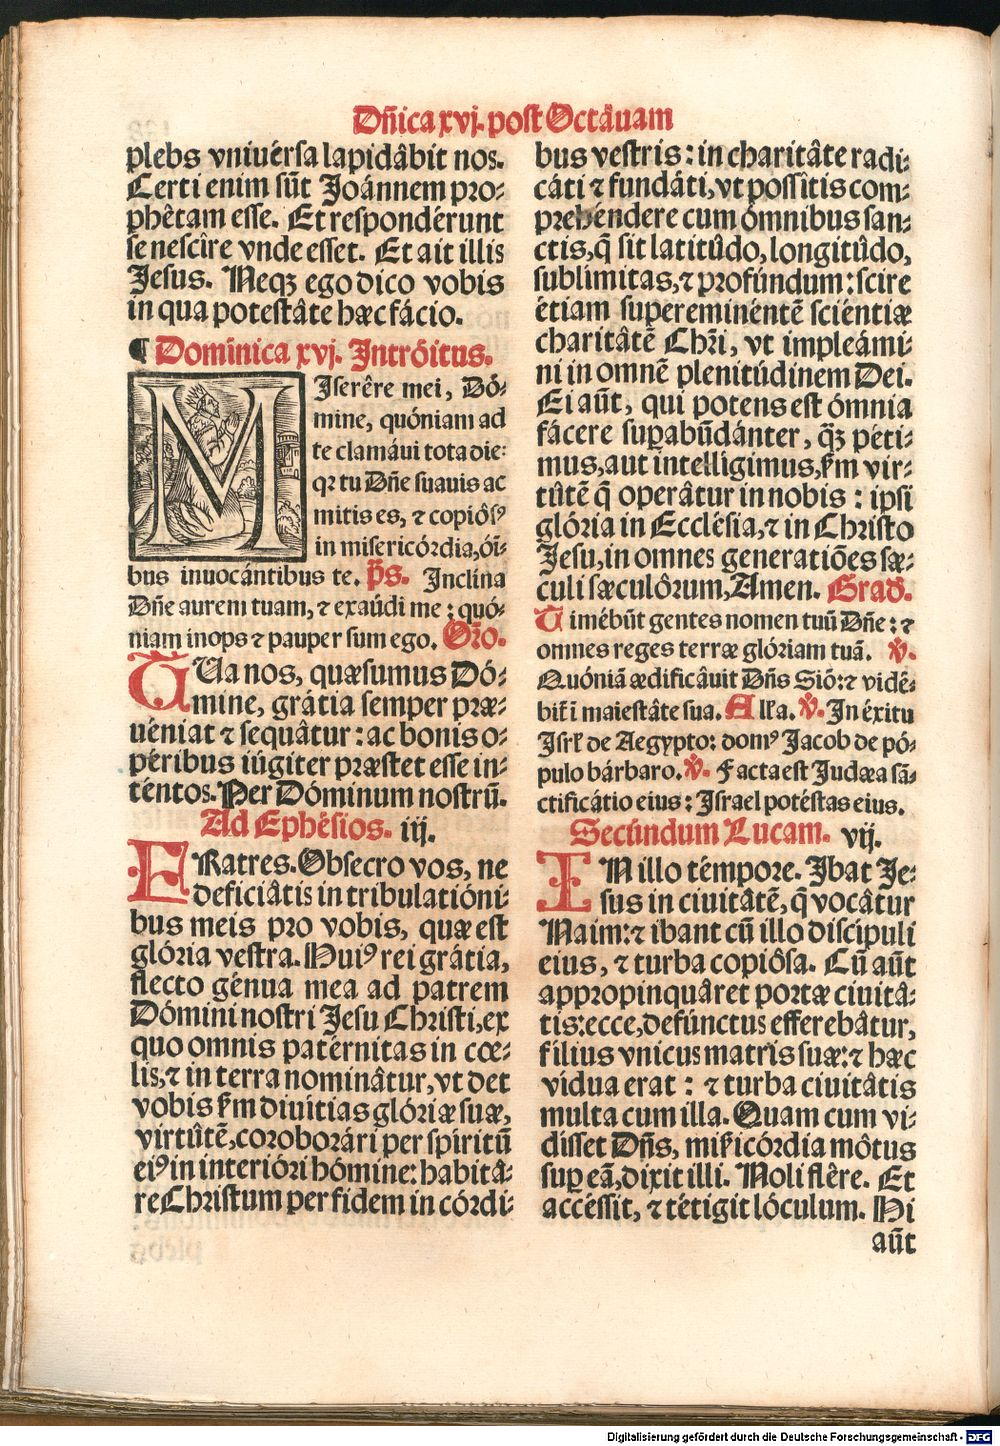 Dñica xvj. post Octâuam
plebs vniuérsa lapidâbit nos.
Certi enim sũt Joánnem pro-
phêtam esse. Et respondérunt
se nescîre vnde esset. Et ait illis
Jesus. Neqꝫ ego dico vobis
in qua potestâte hæc fácio.
¶ Domínica xvj. Intróitus.
MIserêre mei, Dó-
mine, quóniam ad
te clamáui tota die:
qꝛ tu Dñe suauis ac
mitis es, ⁊ copiôsꝰ
in misericórdia, óĩ-
bus inuocántibus te. p̃s. Inclína
Dñe aurem tuam, ⁊ exaúdi me: quó-
niam inops ⁊ pauper sum ego. Oro.
TUa nos, quæsumus Dó-
mine, grátia semper præ-
uéniat ⁊ sequâtur: ac bonis o-
péribus iúgiter præstet esse in-
téntos. Per Dóminum nostrũ.
Ad Ephésios. iij.
FRatres. Obsecro vos, ne
deficiâtis in tribulatióni-
bus meis pro vobis, quæ est
glória vestra. Huiꝰ rei grátia,
flecto génua mea ad patrem
Dómini nostri Jesu Christi, ex
quo omnis patérnitas in cœ-
lis, ⁊ in terra nominâtur, vt det
vobis ẜm diuitias glóriæ suæ,
virtûtẽ, coroborári per spiritũ
eiꝰ in interióri hómine: habitâ-
re Christum per fidem in córdi-
bus vestris: in charitâte radi-
cáti ⁊ fundáti, vt possîtis com-
prehéndere cum ómnibus san-
ctis, q̃ sit latitûdo, longitûdo,
sublímitas, ⁊ profúndum: scire
étiam supereminéntẽ sciéntiæ
charitâtẽ Chři, vt impleámi-
ni in omnẽ plenitúdinem Dei.
Ei aũt, qui potens est ómnia
fácere supabũdánter, q̃ꝫ péti-
mus, aut intellígimus, ẜm vir-
tûtẽ q̃ operâtur in nobis: ipsi
glória in Ecclésia, ⁊ in Christo
Jesu, in omnes generatiões sæ-
culi sæculôrum, Amen. Grad̃.
Timébũt gentes nomen tuũ Dñe: ⁊
omnes reges terræ glóriam tuã. ℣.
Quóniã ædificâuit Dñs Siõ: ⁊ vidé-
biť ĩ maiestâte sua. Alła. ℣. In éxitu
Isrł de Aegypto: domꝰ Jacob de pó-
pulo bárbaro. ℣. Facta est Judæa sã-
ctificátio eius: Israel potéstas eius.
Secúndum Lucam. vij.
IN illo témpore. Ibat Je-
sus in ciuitâtẽ, q̃ vocâtur
Naim: ⁊ ibant cũ illo discípuli
eius, ⁊ turba copiôsa. Cũ aũt
appropinquâret portæ ciuitâ-
tis: ecce, defúnctus efferebâtur,
fílius vnicus matris suæ: ⁊ hæc
vidua erat: ⁊ turba ciuitâtis
multa cum illa. Quam cum vi-
disset Dñs, miẜicórdia môtus
sup eã, dixit illi. Noli flêre. Et
accéssit, ⁊ tétigit lóculum. Hi
aũt
Digitalisierung gefördert durch die Deutsche Forschungsgemeinschaft - DFG